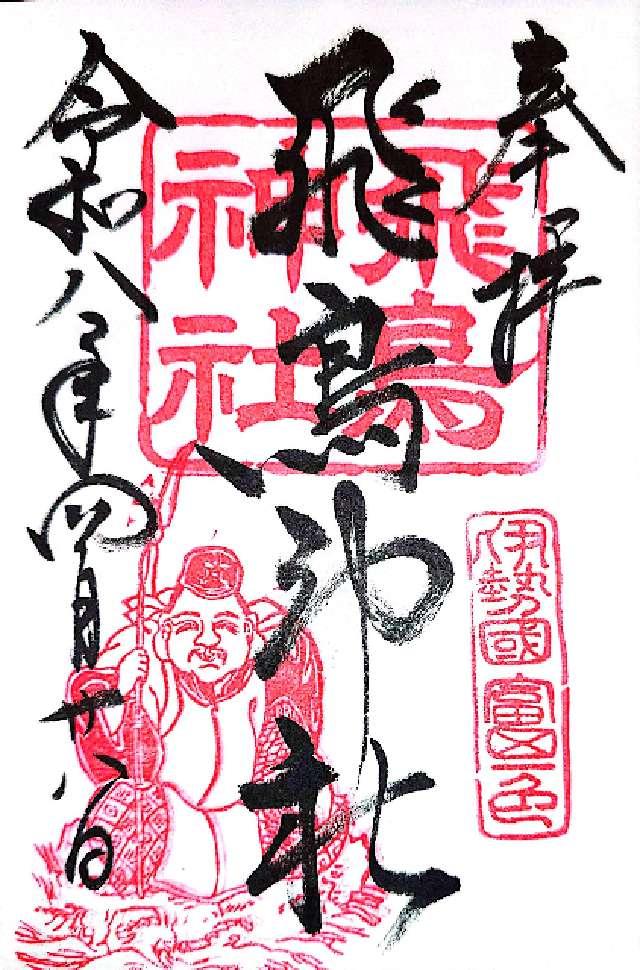 奉拝
飛鳥神社
令和八年四月十八日
飛鳥
神社
伊勢國富一色